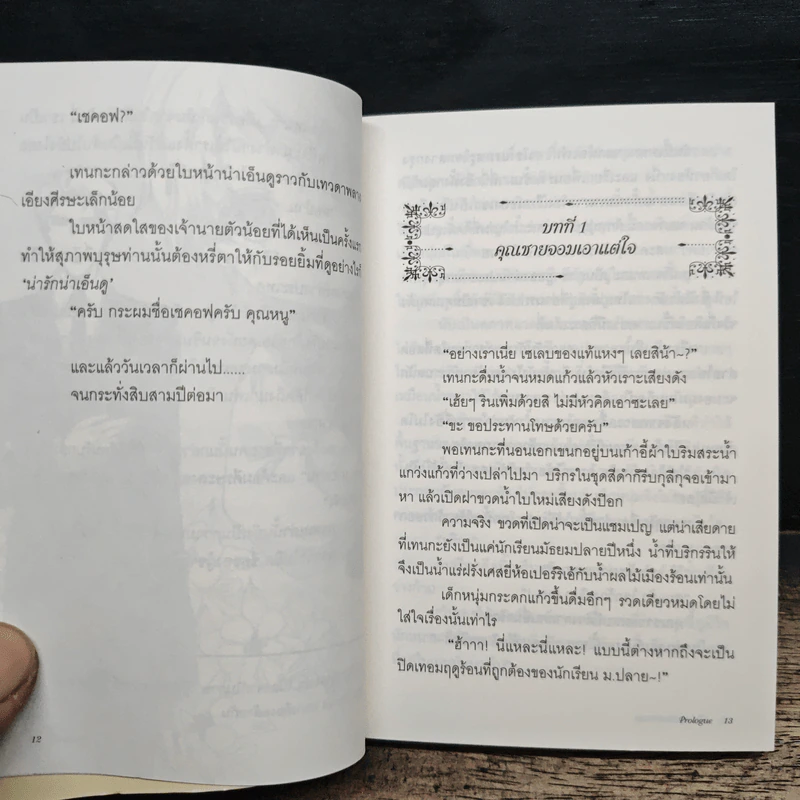 “เชคอฟ?”
เทนกะกล่าวด้วยใบหน้าน่าเอ็นดูราวกับเทวดาพลาง
เอียงศีรษะเล็กน้อย
ใบหน้าสดใสของเจ้านายตัวน้อยที่ได้เห็นเป็นครั้งแรก
ทำให้สุภาพบุรุษท่านนั้นต้องหรี่ตาให้กับรอยยิ้มที่ดูอย่างไรก็
‘น่ารักน่าเอ็นดู’
“ครับ กระผมชื่อเชคอฟครับ คุณหนู”
และแล้ววันเวลาก็ผ่านไป......
จนกระทั่งสิบสามปีต่อมา
12
บทที่ 1
คุณชายจอมเอาแต่ใจ
“อย่างเราเนี่ย เซเลบของแท้แหงๆ เลยสิน้า~?”
เทนกะดื่มน้ำจนหมดแก้วแล้วหัวเราะเสียงดัง
“เฮ้ยๆ รินเพิ่มด้วยสิ ไม่มีหัวคิดเอาซะเลย”
“ขะ ขอประทานโทษด้วยครับ”
พอเทนกะที่นอนเอกเขนกอยู่บนเก้าอี้ผ้าใบริมสระน้ำ
แกว่งแก้วที่ว่างเปล่าไปมา บริกรในชุดสีดำก็รีบกุลีกุจอเข้ามา
หา แล้วเปิดฝาขวดน้ำใบใหม่เสียงดังป๊อก
ความจริง ขวดที่เปิดน่าจะเป็นแชมเปญ แต่น่าเสียดาย
ที่เทนกะยังเป็นแค่นักเรียนมัธยมปลายปีหนึ่ง น้ำที่บริกรรินให้
จึงเป็นน้ำแร่ฝรั่งเศสยี่ห้อเปอร์ริเอ้กับน้ำผลไม้เมืองร้อนเท่านั้น
เด็กหนุ่มกระดกแก้วขึ้นดื่มอึกๆ รวดเดียวหมดโดยไม่
ใส่ใจเรื่องนั้นเท่าไร
“ฮ้าาา! นี่แหละนี่แหละ! แบบนี้ต่างหากถึงจะเป็น
ปิดเทอมฤดูร้อนที่ถูกต้องของนักเรียน ม.ปลาย~!”
Prologue 13